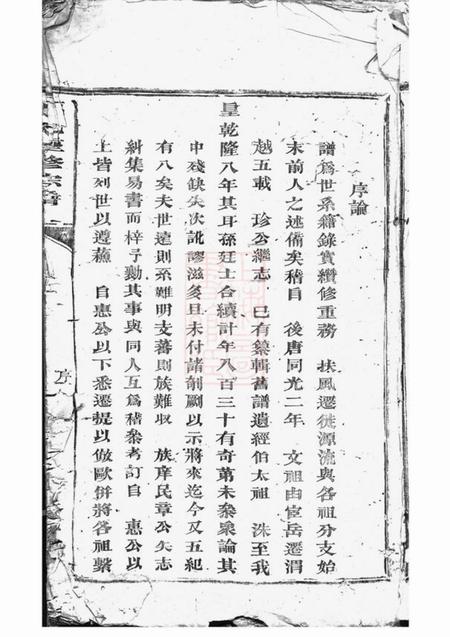 序論
譜爲世系籍錄實纘修重務 扶風遷徙源流與各祖分支始
末前人之述備矣稽自 後唐同光二年 文祖由宦岳遷渭
越五載 珍公繼志 已有纂輯舊譜遺經伯太祖 洙至我
皇乾隆八年其耳孫廷士合續計年八百三十有奇第未叅衆論其
中殘缺失次訛謬滋多且未付諸剞劂以示將來迄今又五紀
有八矣夫世遠則系難明支蕃則族難収 族庠民章公矢志
糾集易書而梓予勷其事與同人互爲稽叅考訂自 惠公以
上皆列世以遵蘇 自惠公以下悉遷提以倣歐併將各祖繫
修宗譜
序